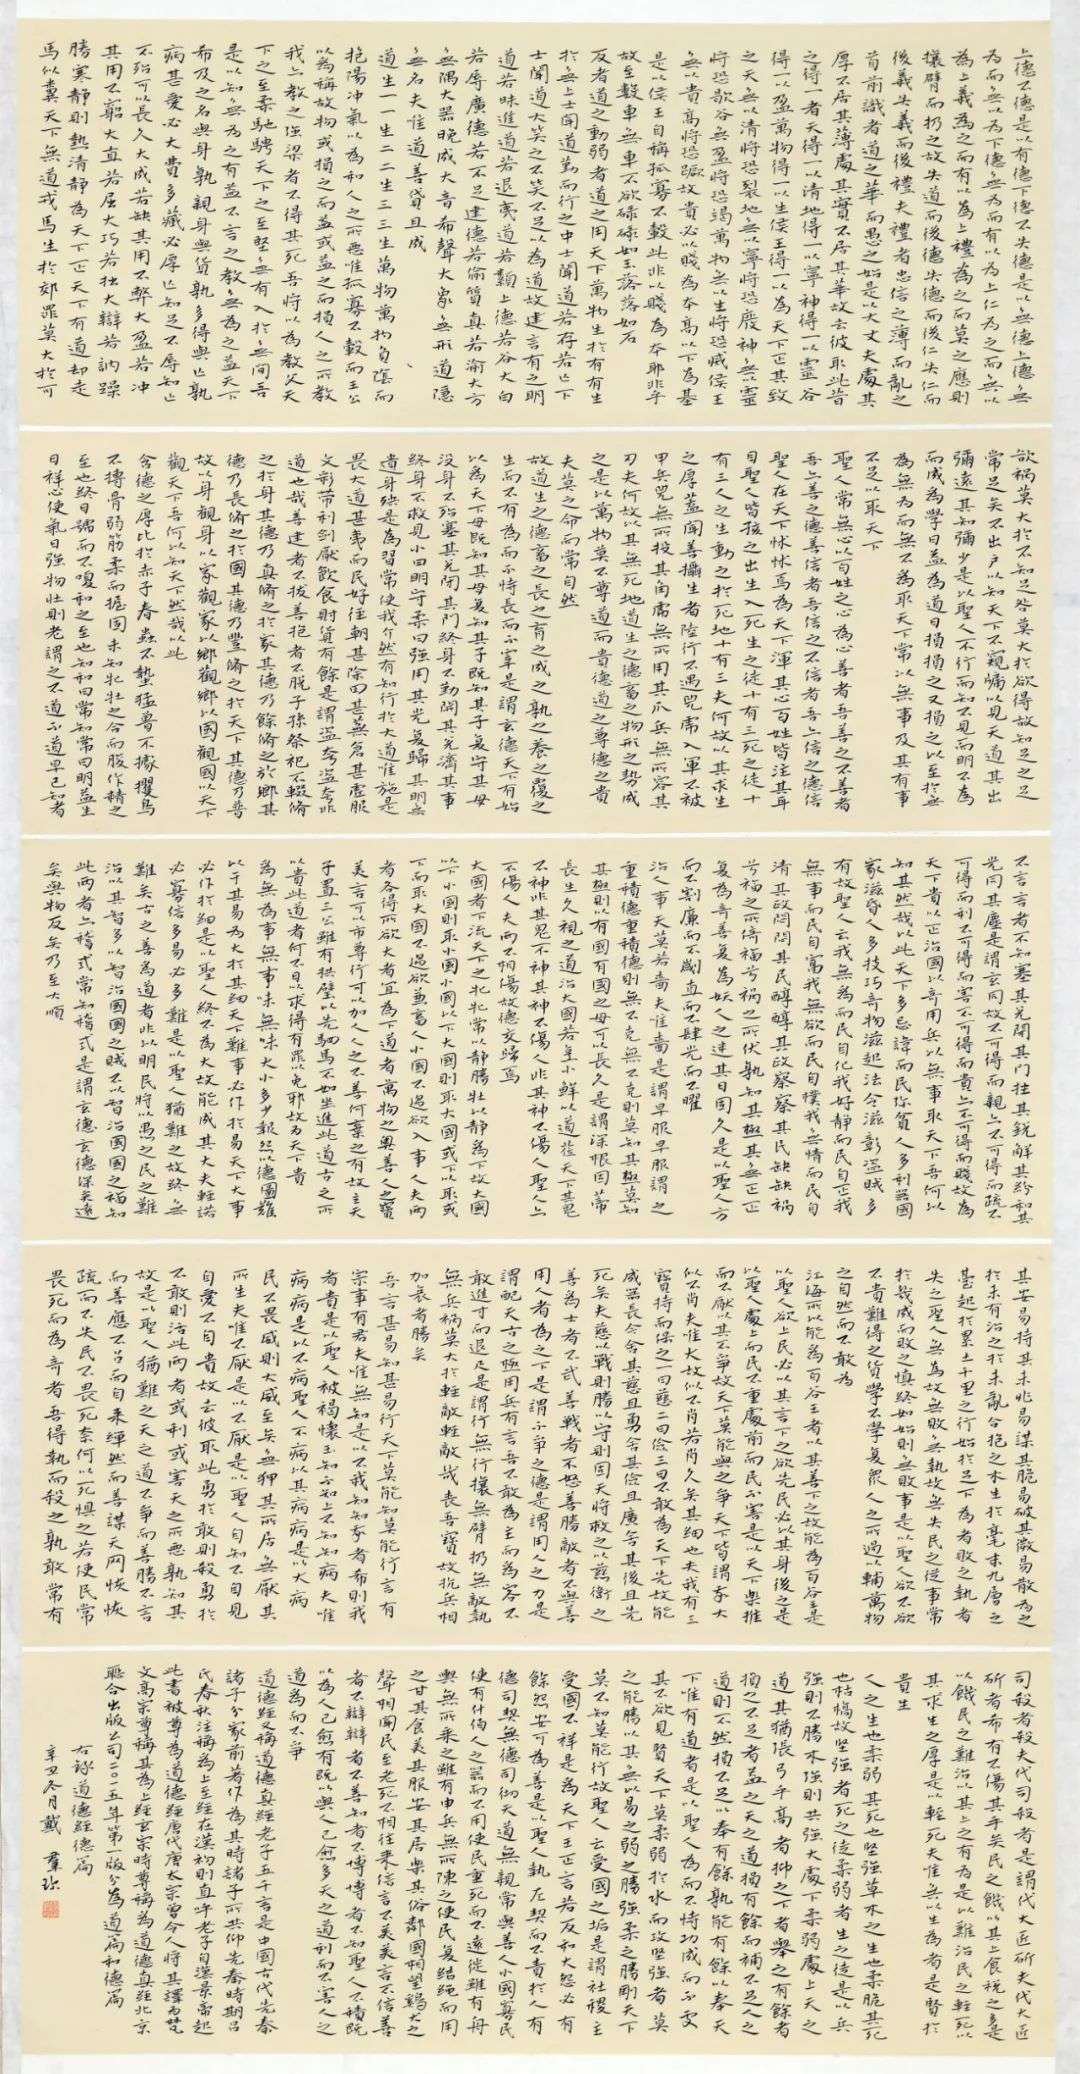 上德不德是以有德下德不失德是以無德上德無
為而無以為下德無為而有以為上仁為之而無以
為上義為之而有以為上禮為之而莫之應則
攘臂而扔之故失道而後德失德而後仁失仁而
後義失義而後禮夫禮者忠信之薄而亂之
首前識者道之華而愚之始是以大丈夫處其
厚不居其薄處其實不居其華故去彼取此昔
之得一者天得一以清地得一以寧神得一以靈谷
得一以盈萬物得一以生侯王得一以為天下正其致
之天無以清將恐裂地無以寧將恐廢神無以靈
將恐歇谷無盈將恐竭萬物無以生將恐滅侯王
無以貴高將恐蹶故貴必以賤為本高以下為基
是以侯王自稱孤寡不轂此非以賤為本耶非乎
故至譽無譽不欲琭琭如玉落落如石
反者道之動弱者道之用天下萬物生於有有生
於無上士聞道勤而行之中士聞道若存若亡下
士聞道大笑之不笑不足以為道故建言有之明
道若昧進道若退夷道若纇上德若谷大白
若辱廣德若不足建德若偷質真若渝大方
無隅大器晚成大音希聲大象無形道隱
無名夫唯道善貸且成
道生一一生二二生三三生萬物萬物負陰而
抱陽冲氣以為和人之所惡唯孤寡不轂而王公
以為稱故物或損之而益或益之而損人之所教
我亦教之强梁者不得其死吾將以為教父天
下之至柔馳騁天下之至堅無有入於無間吾
是以知無為之有益不言之教無為之益天下
希及之名與身孰親身與貨孰多得與亡孰
病甚愛必大費多藏必厚亡知足不辱知止
不殆可以長久大成若缺其用不弊大盈若冲
其用不窮大直若屈大巧若拙大辯若訥躁
勝寒靜則熱清靜為天下正天下有道却走
馬以糞天下無道戎馬生於郊罪莫大於可
欲禍莫大於不知足咎莫大於欲得故知足之足
常足矣不出戶以知天下不窺牖以見天道其出
彌遠其知彌少是以聖人不行而知不見而明不為
而成為學日益為道日損損之又損之以至於無
為無為而無不為取天下常以無事及其有事
不足以取天下
聖人常無心以百姓之心為心善者吾善之不善者
吾亦善之德善信者吾信之不信者吾亦信之德信
聖人在天下怵怵焉為天下渾其心百姓皆注其耳
目聖人皆孩之出生入死生之徒十有三死之徒十
有三人之生動之於死地十有三夫何故以其求生
之厚蓋聞善攝生者陸行不遇兕虎入軍不被
甲兵兕無所投其角虎無所用其爪兵無所容其
刃夫何故以其無死地道生之德畜之物形之勢成
之是以萬物莫不尊道而貴德道之尊德之貴
夫莫之命而常自然
故道生之德畜之長之育之成之熟之養之覆之
生而不有為而不恃長而不宰是謂玄德天下有始
以為天下母既知其母复知其子既知其子复守其母
没身不殆塞其兑閉其門終身不勤開其兑濟其事
終身不救見小曰明守柔曰强用其光复歸其明無
遺身殃是為習常使我介然有知行於大道唯施是
畏大道甚夷而民好徑朝甚除田甚蕪倉甚虛服
文彩帶利劍厭飲食財貨有餘是謂盜夸盜夸非
道也哉善建者不拔善抱者不脱子孫祭祀不輟脩
之於身其德乃真脩之於家其德乃餘脩之於鄉其
德乃長脩之於國其德乃豐脩之於天下其德乃普
故以身觀身以家觀家以鄉觀鄉以國觀國以天下
觀天下吾何以知天下然哉以此
含德之厚比於赤子毒蟲不螫猛獸不據攫鳥
不搏骨弱筋柔而握固未知牝牡之合而朘作精之
至也終日號而不嗄和之至也知和曰常知常曰明益生
曰祥心使氣曰强物壯則老謂之不道不道早已知者
不言言者不知塞其兑閉其門挫其銳解其紛和其
光同其塵是謂玄同故不可得而親亦不可得而疏不
可得而利不可得而害不可得而貴亦不可得而賤故為
天下貴以正治國以奇用兵以無事取天下吾何以
知其然哉以此天下多忌諱而民彌貧人多利器國
家滋昏人多技巧奇物滋起法令滋彰盜賊多
有故聖人云我無為而民自化我好靜而民自正我
無事而民自富我無欲而民自樸我無情而民自
清其政悶悶其民醇醇其政察察其民缺缺禍
兮福之所倚福兮禍之所伏孰知其極其無正正
复為奇善复為妖人之迷其日固久是以聖人方
而不割廉而不劌直而不肆光而不曜
治人事天莫若嗇夫唯嗇是謂早服早服謂之
重積德重積德則無不克無不克則莫知其極莫知
其極則以有國有國之母可以長久是謂深根固蒂
長生久視之道治大國若烹小鮮以道莅天下其鬼
不神非其鬼不神其神不傷人非其神不傷人聖人亦
不傷人夫兩不相傷故德交歸焉
大國者下流天下之牝牝常以靜勝牡以靜為下故大國
以下小國則取小國小國以下大國則取大國或下以取或
下而取大國不過欲兼畜人小國不過欲入事人夫兩
者各得所欲大者宜為下道者萬物之奥善人之寶
美言可以市尊行可以加人人之不善何棄之有故立天
子置三公雖有拱璧以先駟馬不如坐進此道古之所
以貴此道者何不曰以求得有罪以免耶故為天下貴
為無為事無事味無味大小多少報怨以德圖難
以于其易為大於其細天下難事必作於易天下大事
必作於細是以聖人終不為大故能成其大夫輕諾
必寡信多易必多難是以聖人猶難之故終無
難矣古之善為道者非以明民將以愚之民之難
治以其智多以智治國國之賊不以智治國國之福知
此兩者亦稽式常知稽式是謂玄德玄德深矣遠
矣與物反矣乃至大順
其安易持其未兆易謀其脆易破其微易散為之
於未有治之於未亂合抱之木生於毫末九層之
臺起於累土千里之行始於足下為者敗之執者
失之聖人無為故無敗無執故無失民之從事常
於幾成而敗之慎終如始則無敗事是以聖人欲不欲
不貴難得之貨學不學复衆人之所過以輔萬物
之自然而不敢為
江海所以能為百谷王者以其善下之故能為百谷王是
以聖人欲上民必以其言下之欲先民必以其身後之是
以聖人處上而民不重處前而民不害是以天下樂推
而不厭以其不爭故天下莫能與之爭天下皆謂吾大
似不肖夫唯大故似不肖若肖久矣其細也夫我有三
寶持而保之一曰慈二曰儉三曰不敢為天下先故能
成器長今舍其慈且勇舍其儉且廣舍其後且先
死矣夫慈以戰則勝以守則固天將救之以慈衛之
善為士者不武善戰者不怒善勝敵者不與善
用人者為之下是謂不爭之德是謂用人之力是
謂配天古之極用兵有言吾不敢為主而為客不
敢進寸而退尺是謂行無行攘無臂扔無敵執
無兵禍莫大於輕敵輕敵幾喪吾寶故抗兵相
加哀者勝矣
吾言甚易知甚易行天下莫能知莫能行言有
宗事有君夫唯無知是以不我知知吾者希則我
者貴是以聖人被褐懷玉知不知上不知知病夫唯
病病是以不病聖人不病以其病病是以不病
民不畏威則大威至矣無狎其所居無厭其
所生夫唯不厭是以不厭是以聖人自知不自見
自愛不自貴故去彼取此勇於敢則殺勇於
不敢則活此兩者或利或害天之所惡孰知其
故是以聖人猶難之天之道不爭而善勝不言
而善應不召而自來繟然而善謀天网恢恢
疏而不失民不畏死奈何以死惧之若使民常
畏死而為奇者吾得執而殺之孰敢常有
司殺者殺夫代司殺者是謂代大匠斫夫代大匠
斫者希有不傷其手矣民之饑以其上食税之多是
以饑民之難治以其上之有為是以難治民之輕死以
其求生之厚是以輕死夫唯無以生為者是賢於
貴生
人之生也柔弱其死也堅强草木之生也柔脆其死
也枯槁故堅强者死之徒柔弱者生之徒是以兵
强則不勝木强則共强大處下柔弱處上天之
道其猶張弓乎高者抑之下者舉之有餘者
損之不足者益之天之道損有餘而補不足人之
道則不然損不足以奉有餘孰能有餘以奉天
下唯有道者是以聖人為而不恃功成而不處
其不欲見賢天下莫柔弱於水而攻堅强者莫
之能勝以其無以易之弱之勝强柔之勝剛天下
莫不知莫能行故聖人云受國之垢是謂社稷主
受國不祥是為天下王正言若反和大怨必有
餘怨安可為善是以聖人執左契而不責於人有
德司契無德司徹天道無親常與善人小國寡民
使有什伯人之器而不用使民重死而不遠徙雖有舟
輿無所乘之雖有甲兵無所陳之使民复結繩而用
之甘其食美其服安其居樂其俗鄰國相望鷄犬之
聲相聞民至老死不相往來信言不美美言不信善
者不辯辯者不善知者不博博者不知聖人不積既
以為人己愈有既以與人己愈多天之道利而不害人之
道為而不爭
道德經又稱道德真經老子五千言是中國古代先秦
諸子分家前著作為其時諸子所共仰先秦時期吕
氏春秋注稱為上至經在漢初則直呼老子自漢景帝起
此書被尊為道德經唐代唐太宗曾令人將其譯為梵
文高宗尊稱其為上經玄宗時尊稱為道德真經北京
聯合出版公司二〇一五年第一版分為道篇和德篇
右錄道德經德篇
辛丑冬月戴羣